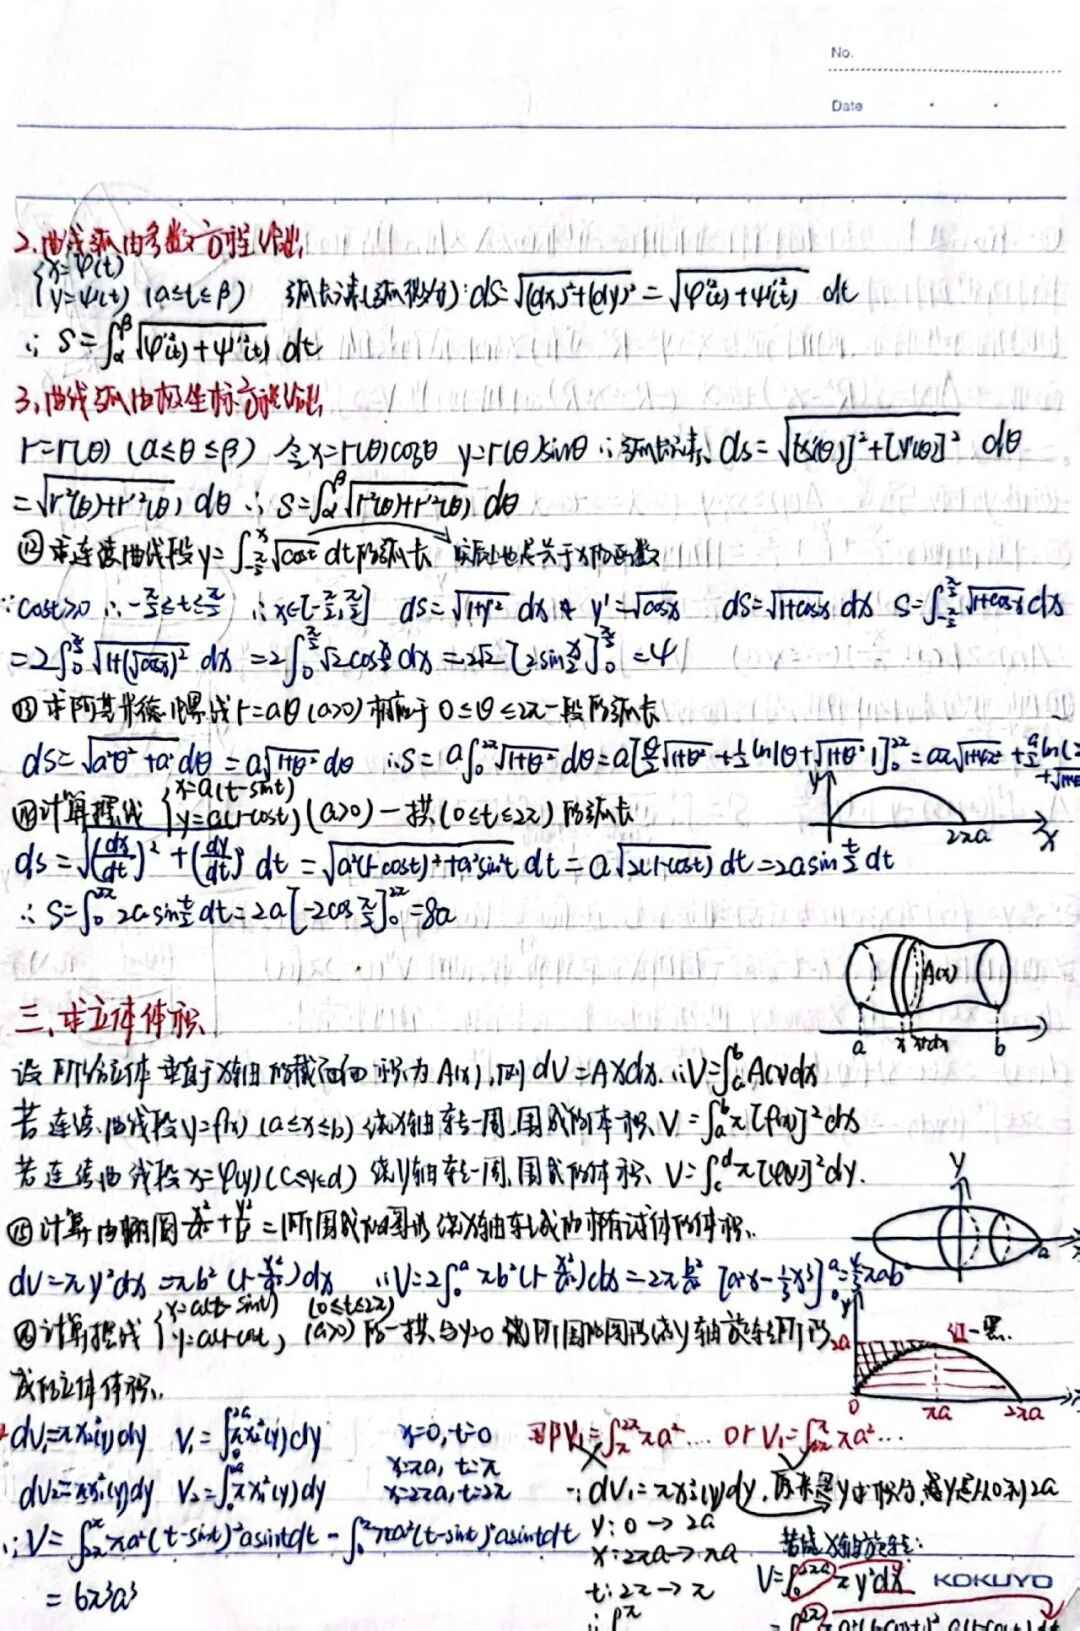 No.
Date
2.曲线弧由参数方程给出
{x=φ(t)
{y=ψ(t) (α≤t≤β) 弧长元素(弧微分):ds=√((dx)²+(dy)²)=√(φ'²(t)+ψ'²(t)) dt
∴ S=∫_α^β √(φ'²(t)+ψ'²(t)) dt
3.曲线弧由极坐标方程给出
r=r(θ) (α≤θ≤β) 令x=r(θ)cosθ y=r(θ)sinθ ∴弧长元素 ds=√([x'(θ)]²+[y'(θ)]²) dθ
=√(r²(θ)+r'²(θ)) dθ ∴ S=∫_α^β √(r²(θ)+r'²(θ)) dθ
⑫求连续曲线段y=∫_{-π/2}^x √cost dt的弧长 实际上也是关于x的函数
∵cost≥0 ∴-π/2≤t≤π/2 ∴x∈[-π/2,π/2] ds=√(1+y'²) dx y'=√cosx ds=√(1+cosx) dx S=∫_{-π/2}^{π/2} √(1+cosx) dx
=2∫_0^{π/2} √(1+(√cosx)²) dx =2∫_0^{π/2} √2 cos x/2 dx =2√2 [2sin x/2]_0^{π/2} =4
⑬求阿基米德螺线r=aθ(a>0)相应于0≤θ≤2π一段的弧长
ds=√(a²θ²+a²) dθ = a√(1+θ²) dθ ∴S=a∫_0^{2π} √(1+θ²) dθ=a[θ/2 √(1+θ²)+1/2 ln|θ+√(1+θ²)|]_0^{2π} =aπ√(1+4π²)+a/2 ln(2
⑭计算摆线 {x=a(t-sint) {y=a(1-cost) (a>0)一拱(0≤t≤2π)的弧长
y 2πa x
ds=√((dx/dt)²+(dy/dt)²) dt =√(a²(1-cost)²+a²sin²t) dt = a√(2(1-cost)) dt =2a sin t/2 dt
∴ S=∫_0^{2π} 2a sin t/2 dt=2a[-2cos t/2]_0^{2π}=8a
A(x)
a x x+dx b
三、求立体体积
设所给立体垂直于x轴的截面面积为A(x),则dV=A(x)dx. ∴V=∫_a^b A(x)dx
若连续曲线段y=f(x)(a≤x≤b)绕x轴转一周,围成的体积 V=∫_a^b π[f(x)]²dx
若连续曲线段x=φ(y)(c≤y≤d)绕y轴转一周,围成的体积 V=∫_c^d π[φ(y)]²dy.
⑮计算由椭圆x²/a²+y²/b²=1所围成的图形绕x轴转成的椭球体的体积.
y a
dV=πy²dx=πb²(1-x²/a²)dx ∴V=2∫_0^a πb²(1-x²/a²)dx=2π b²/a² [a²x-1/3x³]_0^a=4/3πab²
⑯计算摆线 {x=a(t-sint) {y=a(1-cost) (0≤t≤2π) (a>0)的一拱与y=0 所围的图形绕y轴旋转所形
y 2a 红-黑
0 πa 2πa
成的立体体积.
dV₁=πx₂²(y)dy V₁=∫_0^{2a}πx₂²(y)dy x=0,t=0 即V₁=∫_π^{2π}πa²... or V₁=∫_{2π}^π πa²...
x=πa, t=π
dV₂=πx₁²(y)dy V₂=∫_0^{2a}πx₁²(y)dy x=2πa,t=2π ∵dV₁=πx₂²(y)dy,原来是y求积分,是y是从0到2a
∴V=∫_{2π}^π πa²(t-sint)²asintdt-∫_0^π πa²(t-sint)²asintdt y:0→2a
x:2πa→πa 若绕x轴旋转:
=6π³a³ t:2π→π V=∫_0^{2πa} πy²dx
KOKUYO